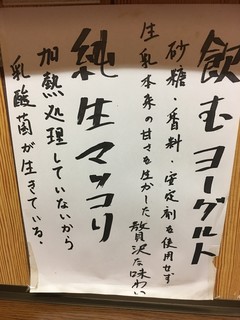 飲むヨーグルト
砂糖・香料・安定剤を使用せず
生乳本来の甘さを生かした贅沢な味わい
純生マッコリ
加熱処理していないから
乳酸菌が生きている。